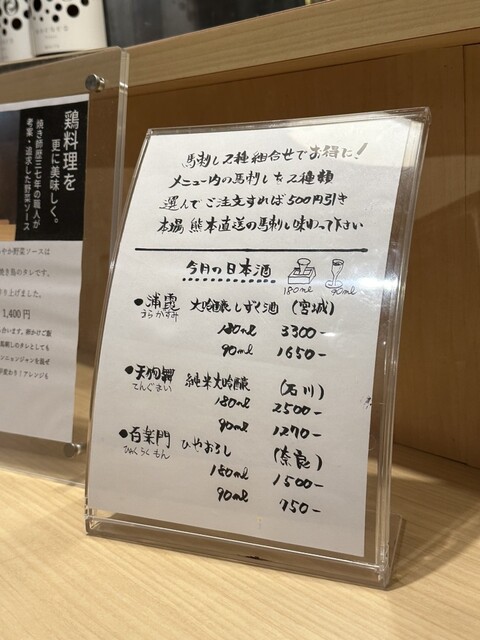 鶏料理を
更に美味しく。
焼き師歴三七年の職人が
考案・追求した野菜ソース
やか野菜ソースは
焼き鳥のタレです。
り上げました。
1,400円
馬刺し2種組合せでお得に!
メニュー内の馬刺しを2種類
選んでご注文すれば500円引き
本場熊本直送の馬刺し味わって下さい
今月の日本酒
180ml 90ml
●浦霞 大吟醸しずく酒 (宮城)
うらかすみ
180ml 3300-
90ml 1650-
●天狗舞 純米大吟醸 (石川)
てんぐまい
180ml 2500-
90ml 1270-
●百楽門 ひやおろし (奈良)
ひゃくらくもん
180ml 1500-
90ml 750-